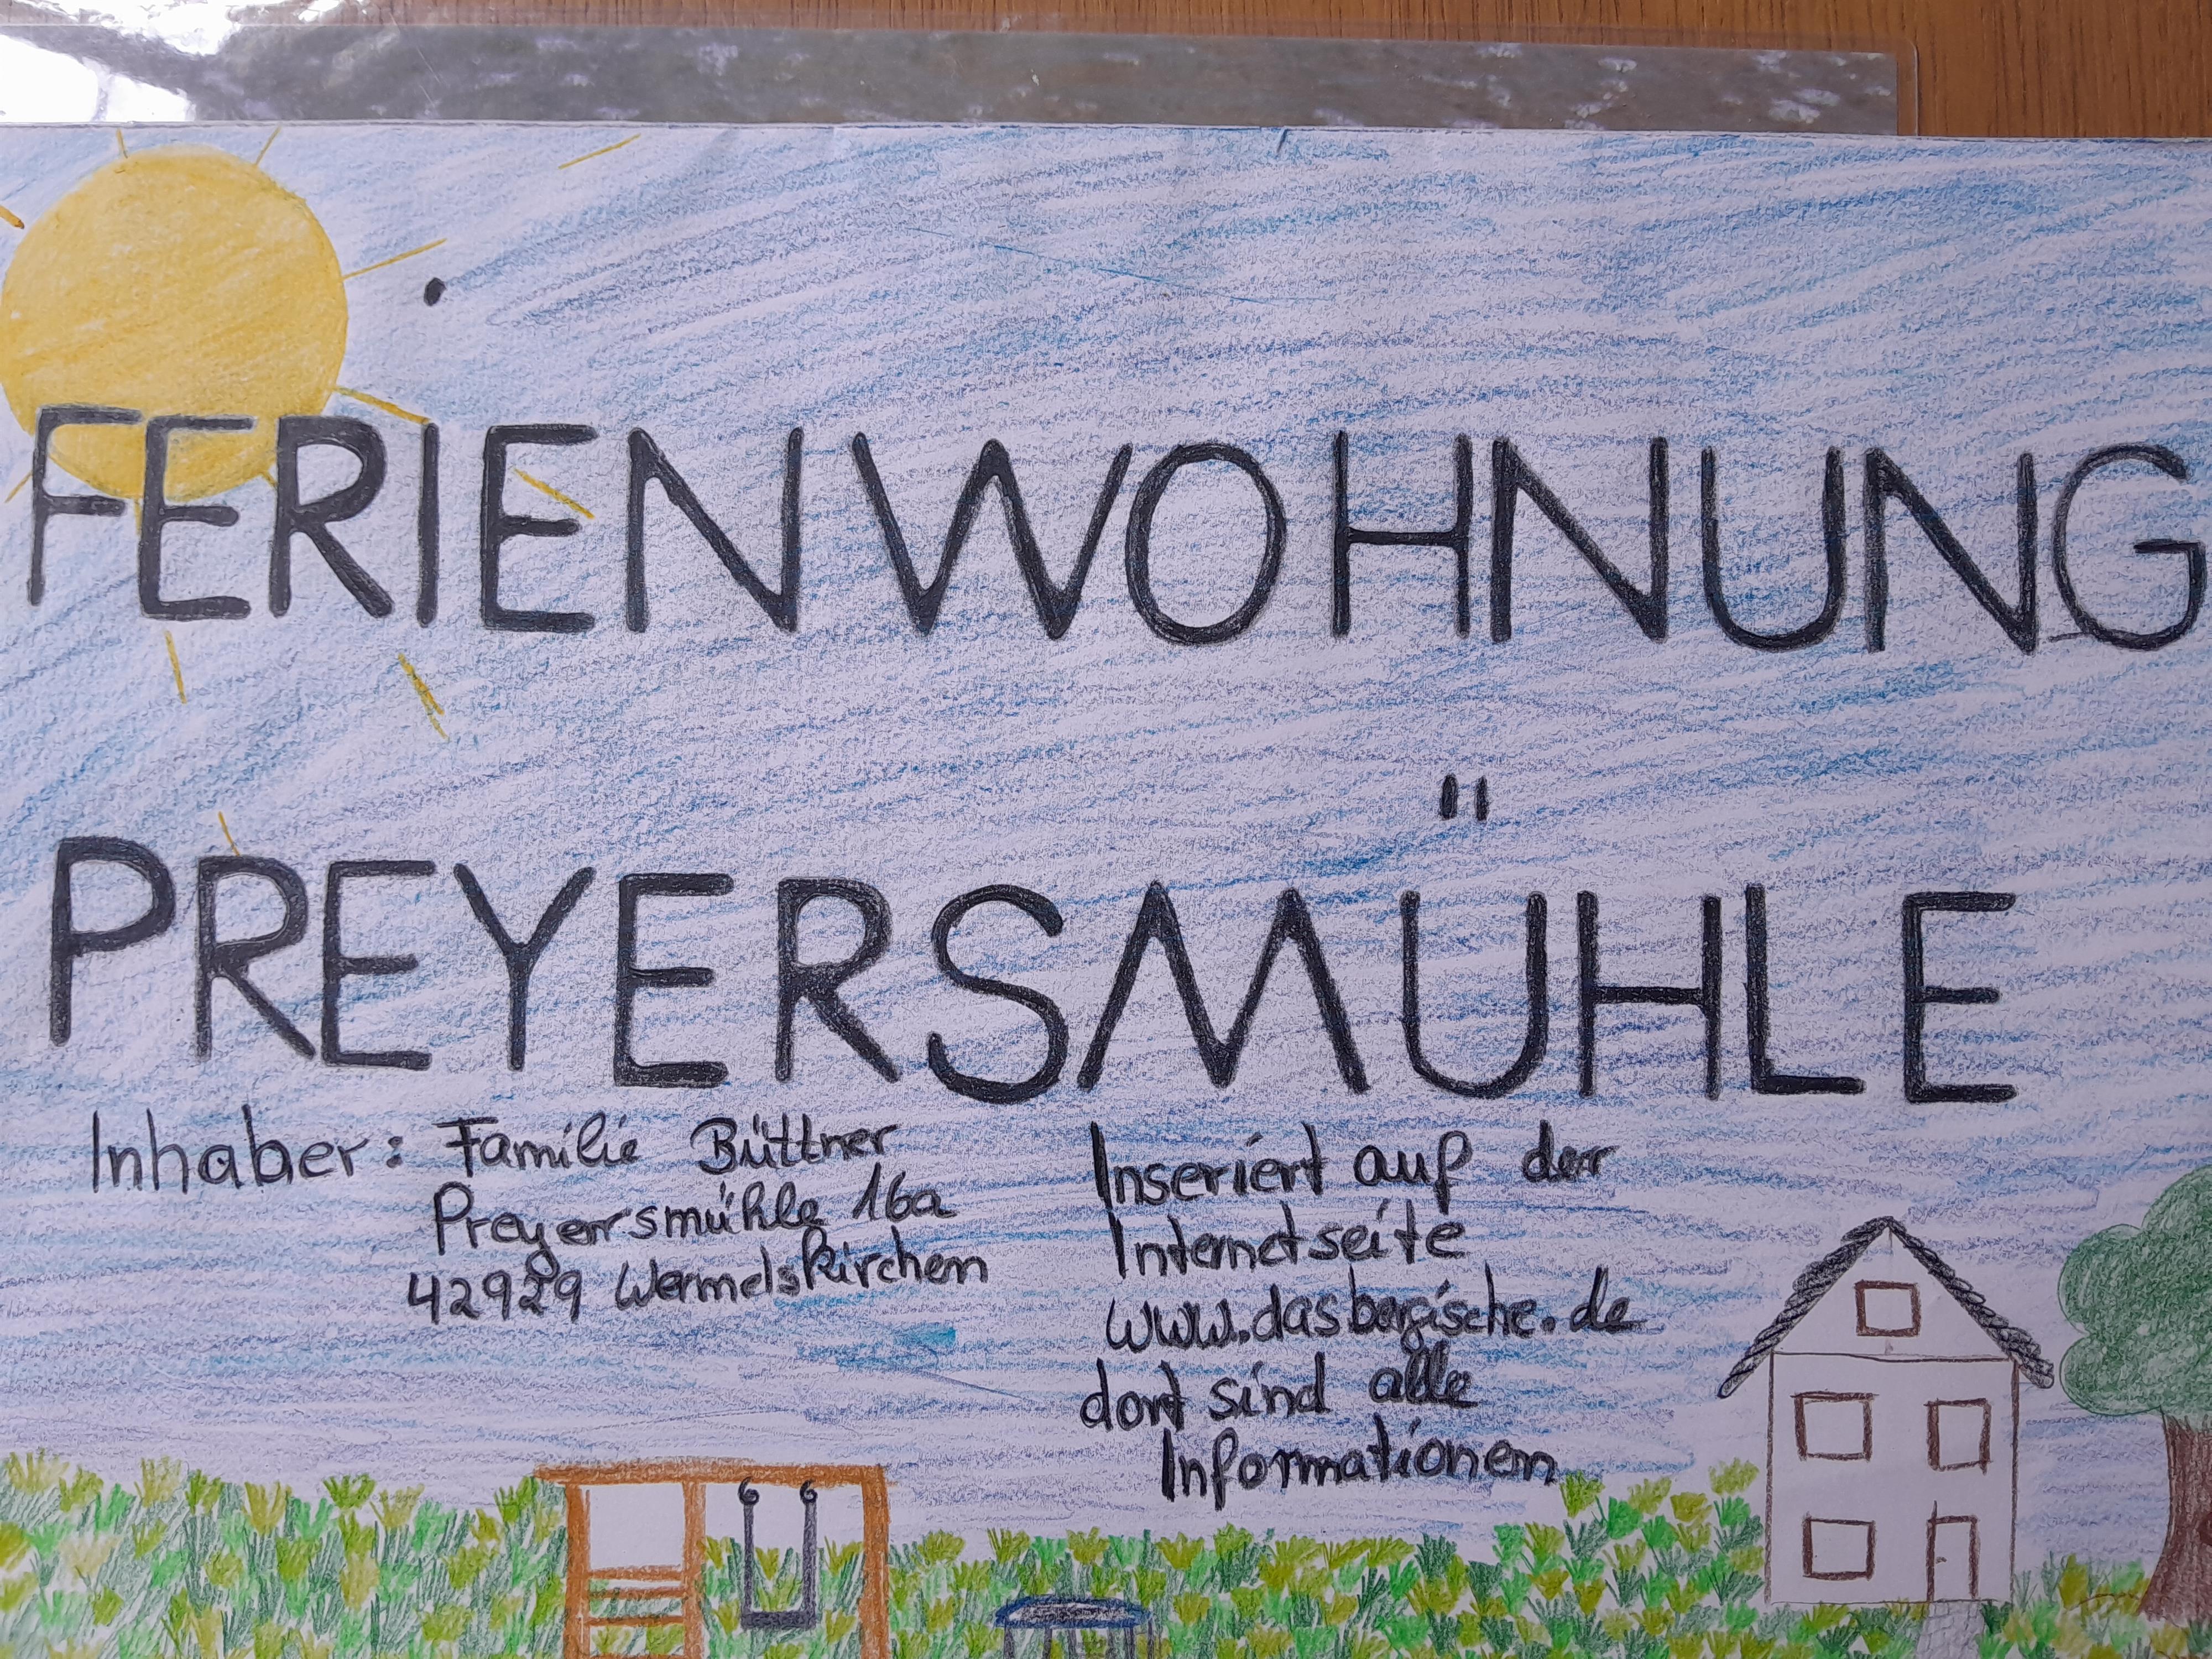 FERIENWOHNUNG
PREYERSMÜHLE
Inhaber: Familie Büttner
Preyersmühle 16a
42929 Wermelskirchen
Inseriert auf der
Internetseite
www.dasbergische.de
dort sind alle
Informationen